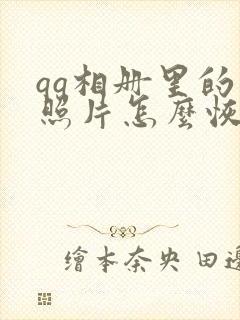 qq相册里的
照片怎麼恢
繪本奈央 田邊